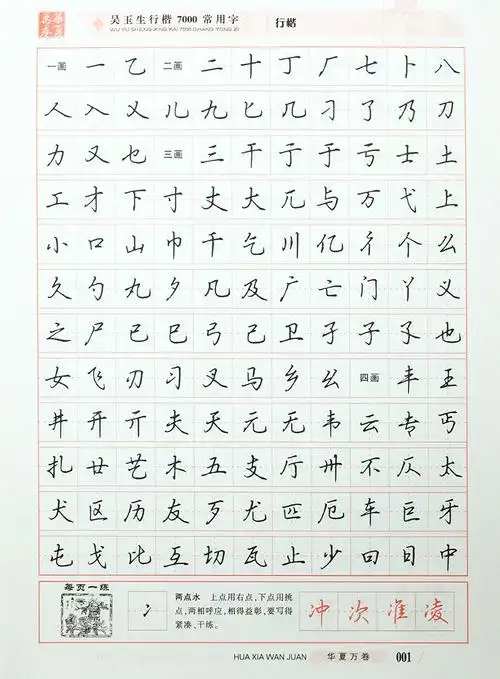 华夏万卷
吴玉生行楷 7000 常用字
WU YU SHENG XING KAI 7000 CHANG YONG ZI
行楷
一画 一 乙 二画 二 十 丁 厂 七 卜 八
人 入 乂 儿 九 匕 几 刁 了 乃 刀
力 又 乜 三画 三 干 亍 于 亏 士 土
工 才 下 寸 丈 大 兀 与 万 弋 上
小 口 山 巾 千 乞 川 亿 彳 个 么
久 勺 丸 夕 凡 及 广 亡 门 丫 义
之 尸 已 巳 弓 己 卫 孑 子 孓 也
女 飞 刃 习 叉 马 乡 幺 四画 丰 王
井 开 亓 夫 天 元 无 韦 云 专 丐
扎 廿 艺 木 五 支 厅 卅 不 仄 太
犬 区 历 友 歹 尤 匹 厄 车 巨 牙
屯 戈 比 互 切 瓦 止 少 曰 日 中
每页一练
冫
两点水 上点用右点，下点用挑
点，两相呼应，相得益彰，要写得
紧凑、干练。
冲 次 准 凌
HUA XIA WAN JUAN 华夏万卷 001